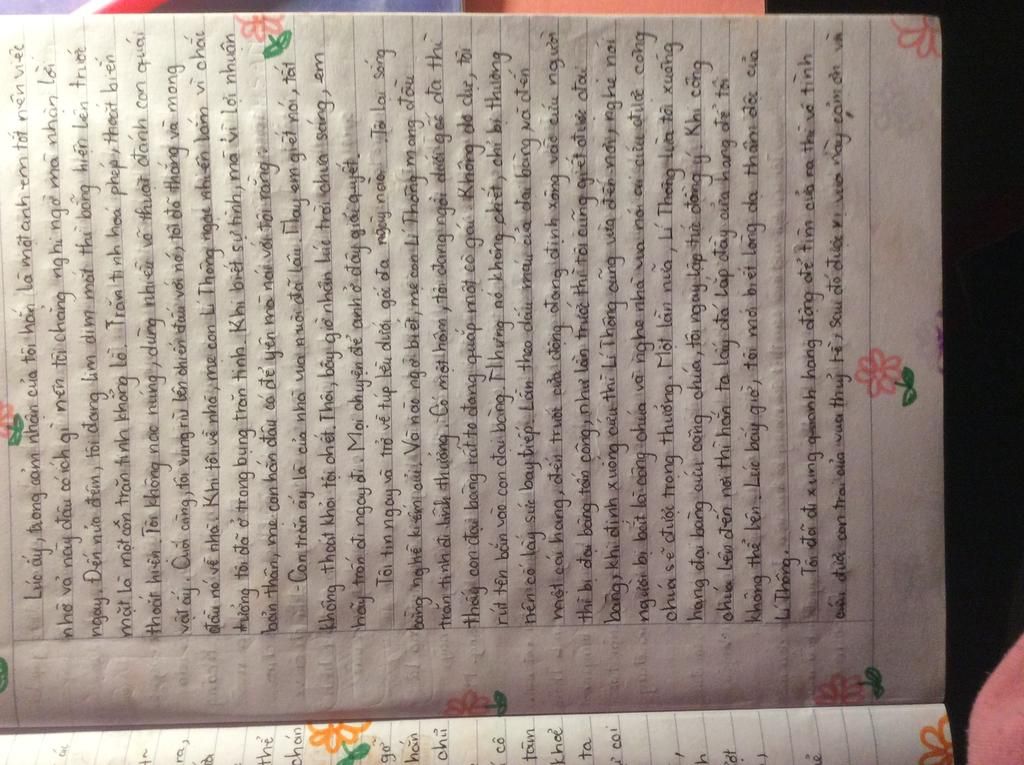 Lúc ấy, trong cảm nhận của tôi hắn là một anh em tốt nên việc
nhờ vả này đâu có ích gì nên tôi chẳng nghi ngờ mà nhận lời
ngay. Đến nửa đêm, tôi đang lim dim mắt thì bỗng hiện lên trước
mặt là một con trăn tinh khổng lồ. Trăn tinh hoá phép, thoắt biến
thoắt hiện. Tôi không nao núng, dùng nhiều võ thuật đánh con quái
vật ấy. Cuối cùng, tôi vung rìu lên chiến đấu với nó, tôi đã thắng và mang
đầu nó về nhà. Khi tôi về nhà, mẹ con Lí Thông ngạc nhiên lắm vì chắc
tưởng tôi đã ở trong bụng trăn tinh. Khi biết sự tình, mà vì lợi nhuận
bản thân, mẹ con hắn đâu có để yên mà nói với tôi rằng:
- Con trăn ấy là của nhà vua nuôi đã lâu. Nay em giết nó, tất
không thoát khỏi tội chết. Thôi, bây giờ nhân lúc trời chưa sáng, em
hãy trốn đi ngay đi. Mọi chuyện để anh ở đây giải quyết.
Tôi tin ngay và trở về túp lều dưới gốc đa ngày nào. Tôi lại sống
bằng nghề kiếm củi. Và nào ngờ biết, mẹ con Lí Thông mang đầu
trăn tinh đi lĩnh thưởng. Có một hôm, tôi đang ngồi dưới gốc đa thì
thấy con đại bàng rất to đang quặp một cô gái. Không do dự, tôi
rút tên bắn vào con đại bàng. Nhưng nó không chết, chỉ bị thương
nên cố lấy sức bay tiếp. Lần theo dấu máu của đại bàng và đến
một cái hang, đến trước cửa động, đang định xông vào cứu người
thì bị đại bàng tấn công, như lần trước thì tôi cũng giết được đại
bàng, khi định xuống cứu thì Lí Thông cũng vừa đến nơi, nghe nói
người bị bắt là công chúa và nghe nhà vua nói ai cứu được công
chúa sẽ được trọng thưởng. Một lần nữa, Lí Thông lừa tôi xuống
hang đại bàng cứu công chúa, tôi ngay lập tức đồng ý. Khi công
chúa lên đến nơi thì hắn ta lấy đá lấp đầy cửa hang để tôi
không thể lên. Lúc bấy giờ, tôi mới biết lòng dạ thâm độc của
Lí Thông.
Tôi đã đi xung quanh hang động để tìm cửa ra thì vô tình
cứu được con trai của vua thuỷ tề, sau đó được vị vua này cảm ơn và
ra,
thể
chán
gỡ
hắn
chủ
cô
tấn
khoẻ
ta
coi